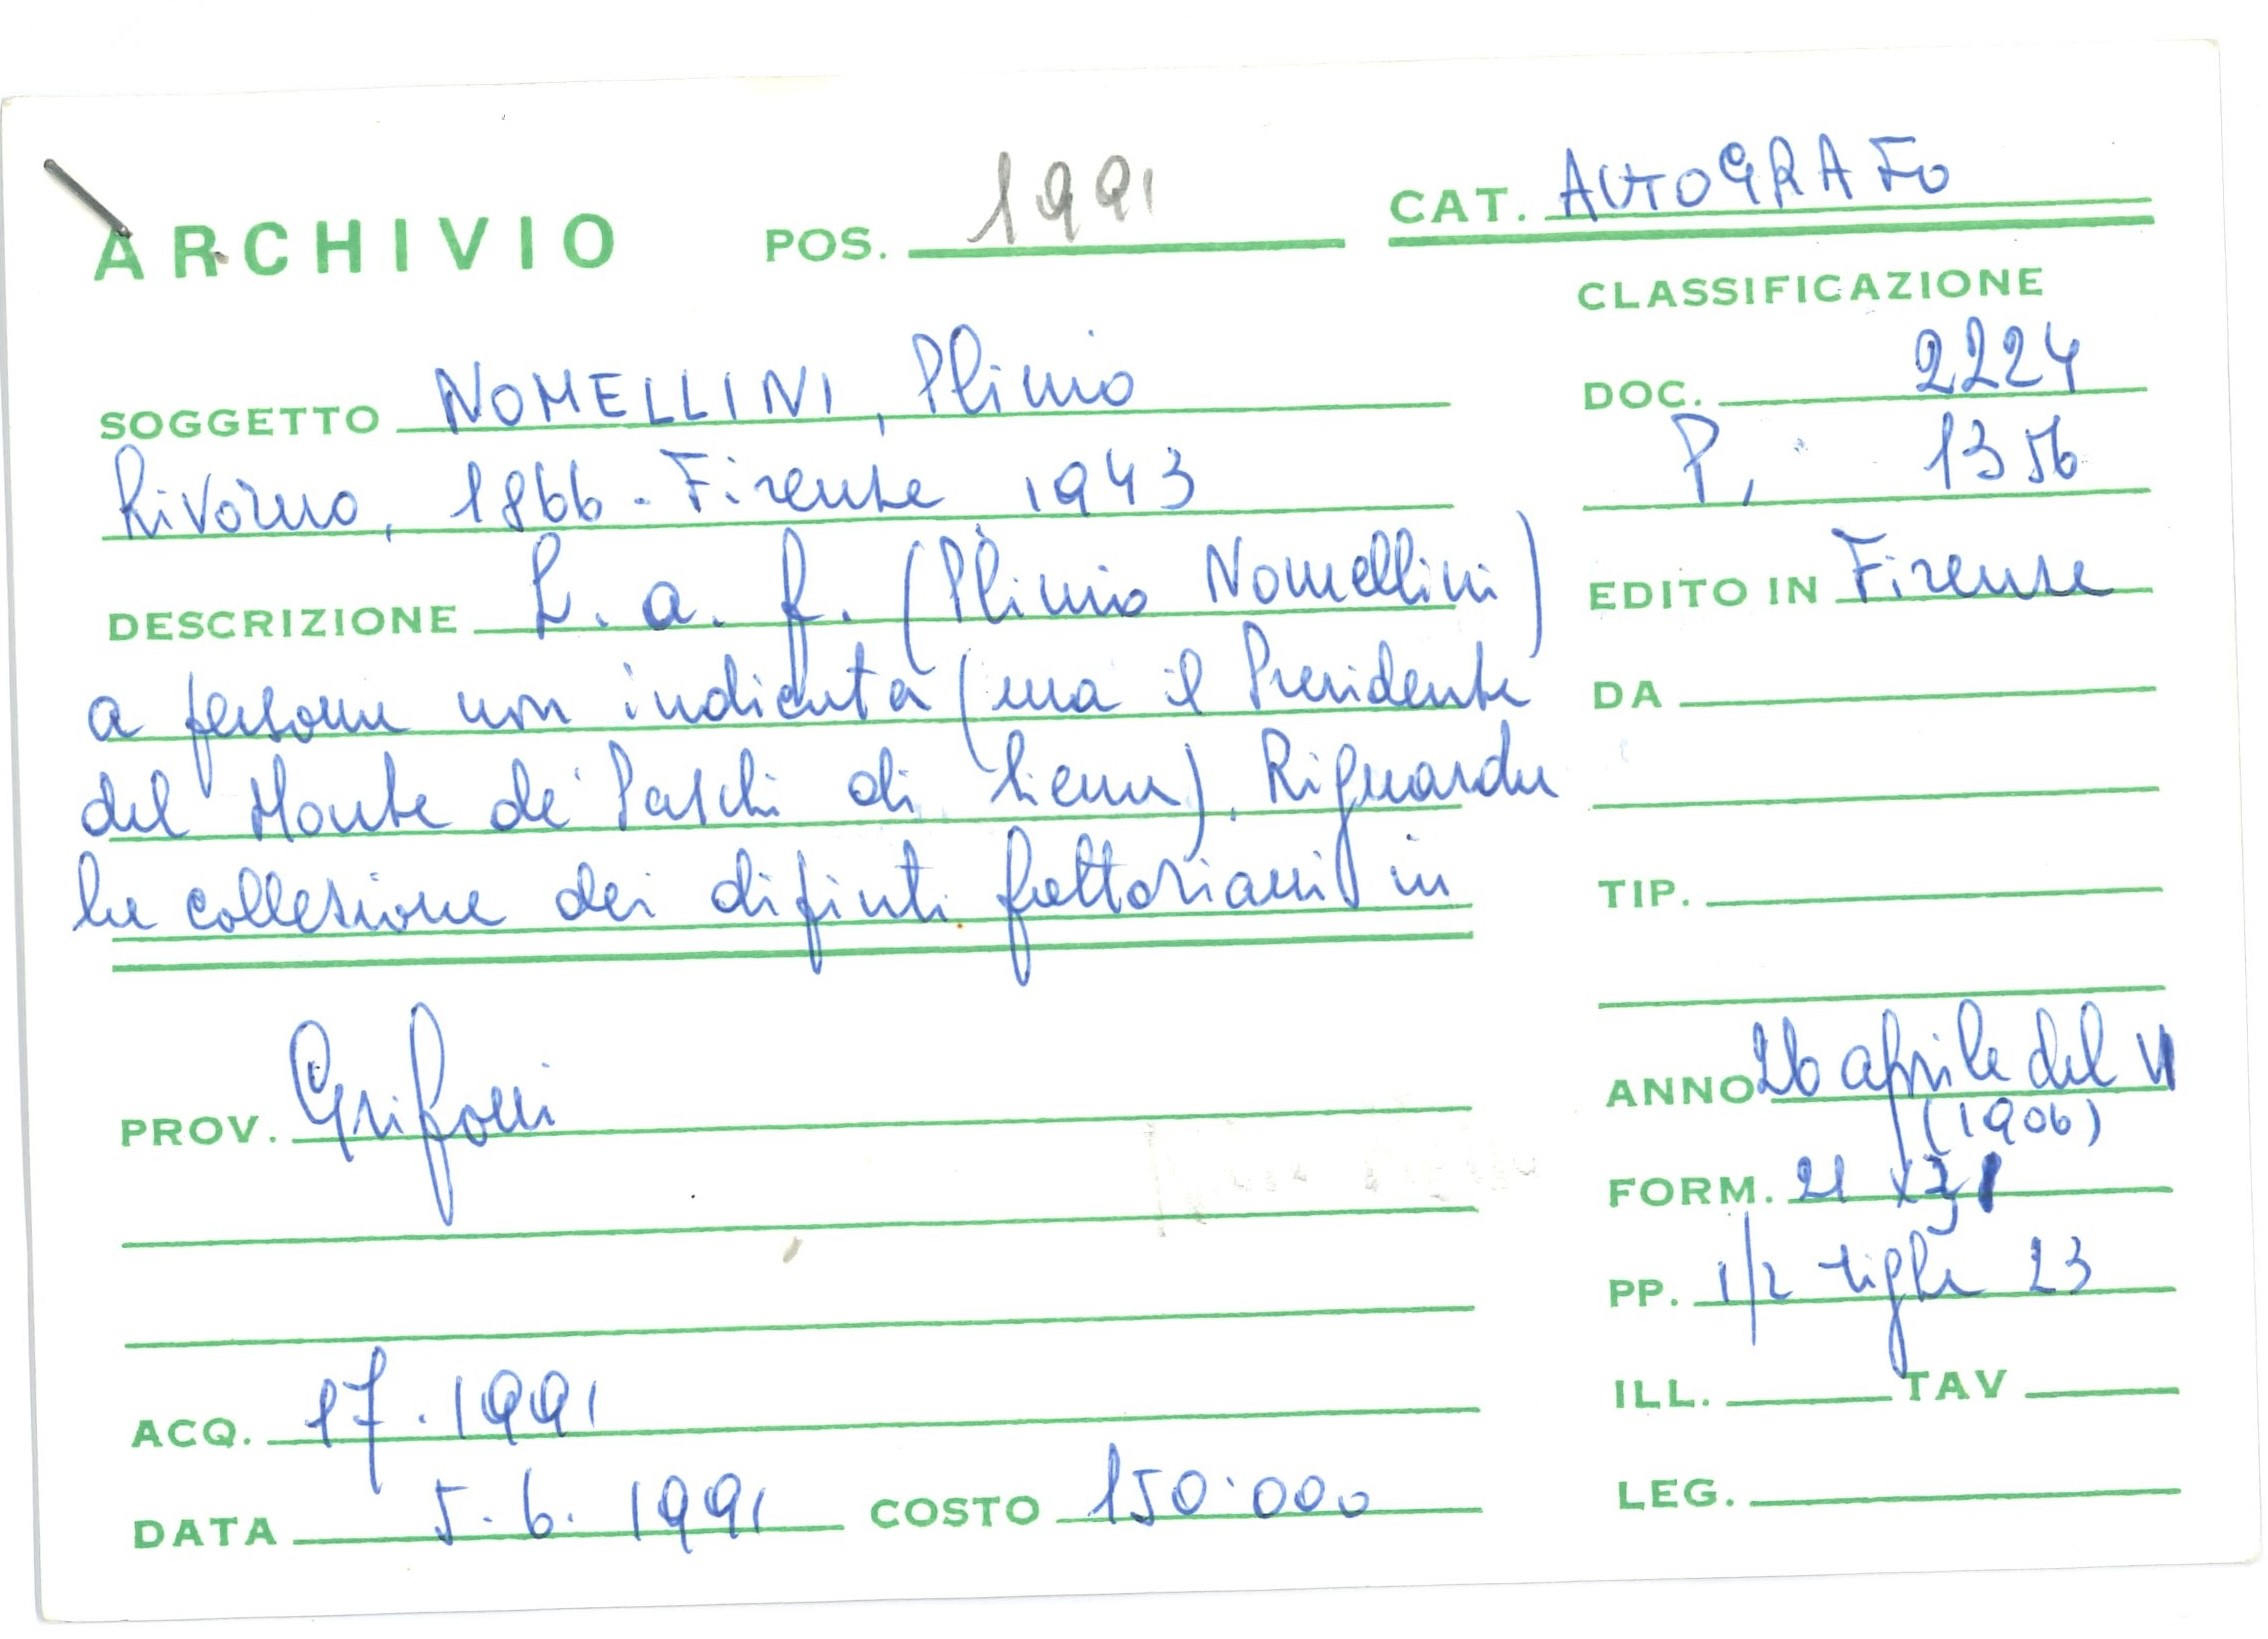 ARCHIVIO POS. 1991 CAT. AUTOGRAFO
CLASSIFICAZIONE
SOGGETTO NOMELLINI, Plinio
DOC. 2224
Livorno, 1866 - Firenze 1943
P, 1356
DESCRIZIONE L. a. f. (Plinio Nomellini)
EDITO IN Firenze
a persona non indicata (ma il Presidente
DA
del Monte de' Paschi di Siena). Riguarda
la collezione dei dipinti fattoriani in
TIP.
PROV. Grifoni
ANNO 26 aprile del VI
(1906)
FORM. 21 x
PP. 1/2 righe 23
ACQ. 17.1991
ILL. TAV
DATA 5.6.1991 COSTO 150.000
LEG.